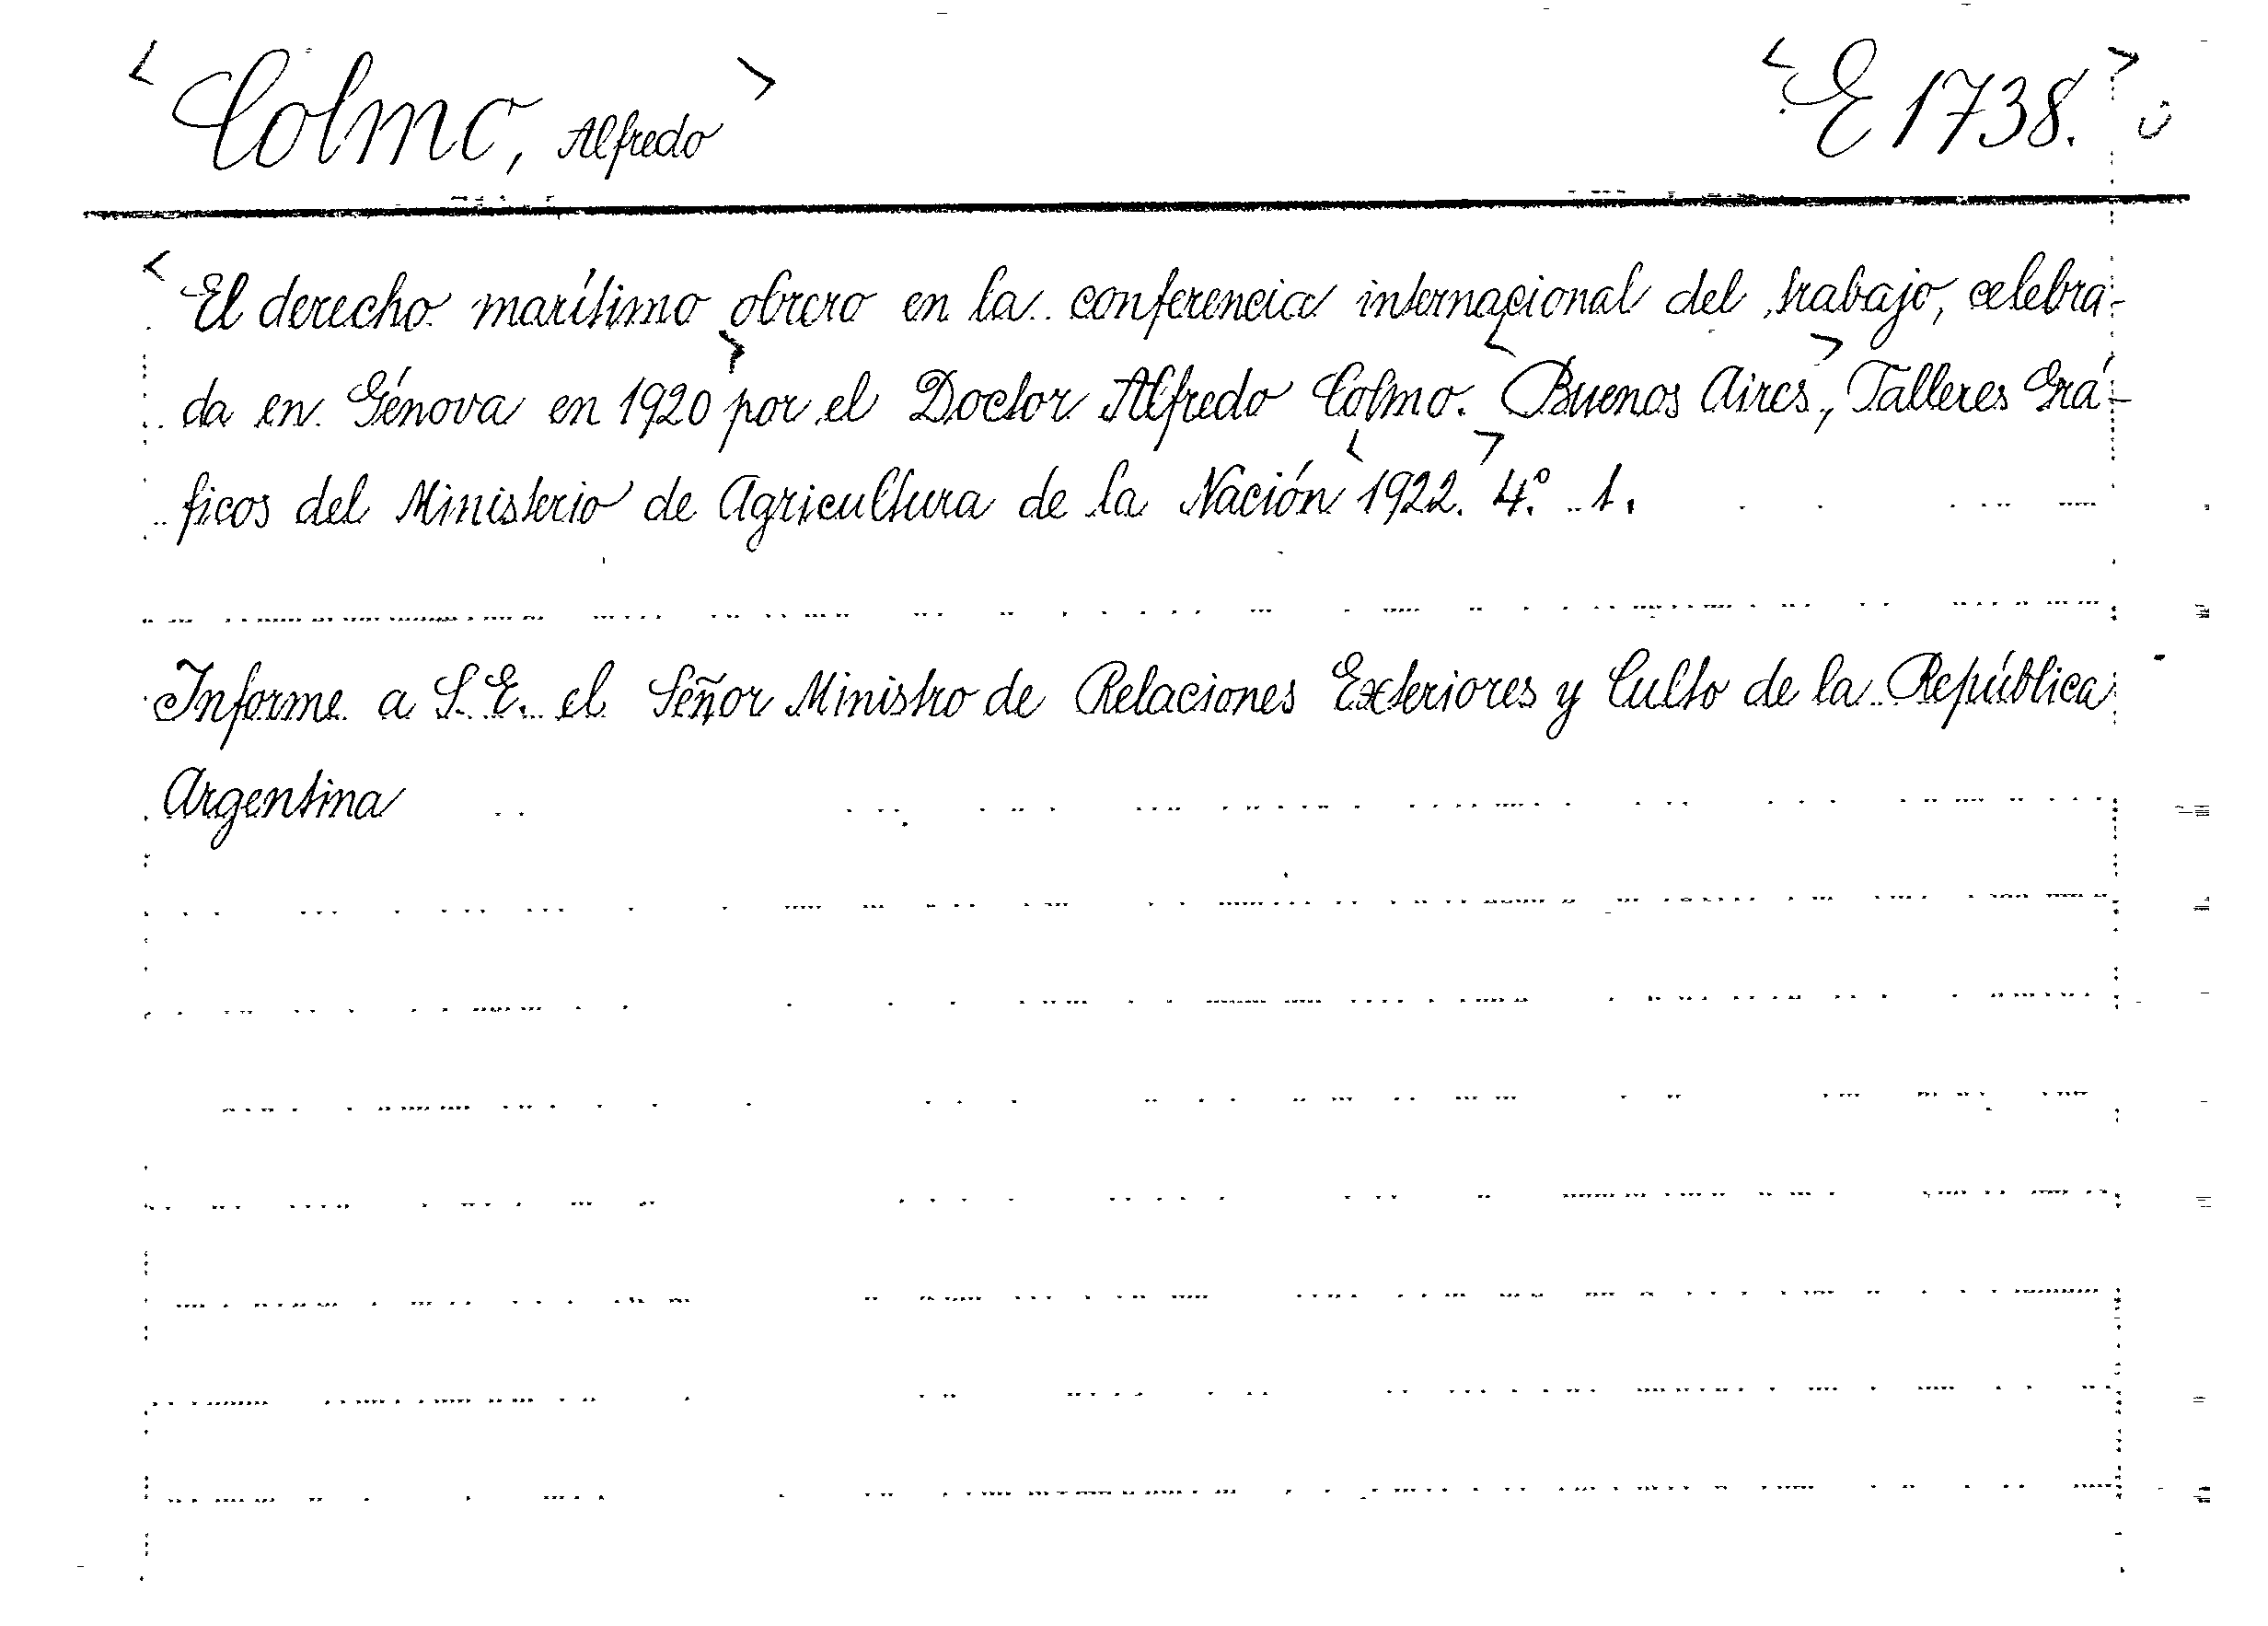 <Colmo, Alfredo> <E 1738.>
<El derecho marítimo obrero en la conferencia internacional del trabajo, celebra-
da en Génova en 1920> por el Doctor Alfredo Colmo. <Buenos Aires>, Talleres Grá-
ficos del Ministerio de Agricultura de la Nación <1922.> 4.º 1.
Informe a S. E. el Señor Ministro de Relaciones Exteriores y Culto de la República
Argentina